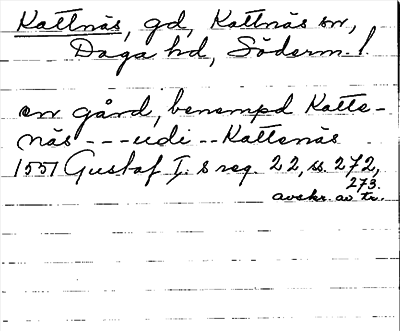 Kattnäs, gd, Kattnäs sn,
Daga hd, Söderm. l.
en gård, benempd Katte-
näs - - - udi - - Kattenäs
1551 Gustaf I:s reg. 22, s. 272,
273.
avskr. av tr.